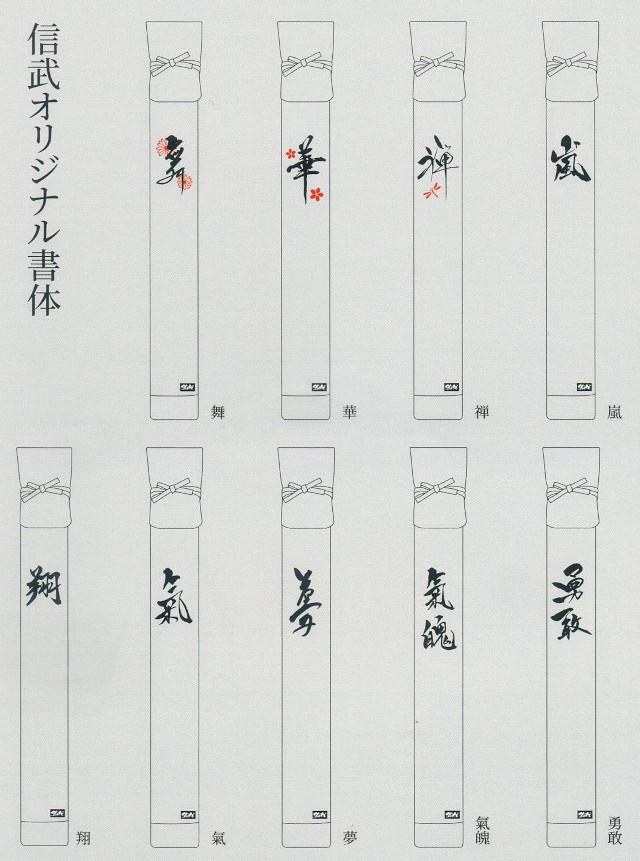 信武オリジナル書体
舞
舞
華
華
禅
禅
嵐
嵐
翔
翔
氣
氣
夢
夢
氣魄
氣魄
勇敢
勇敢